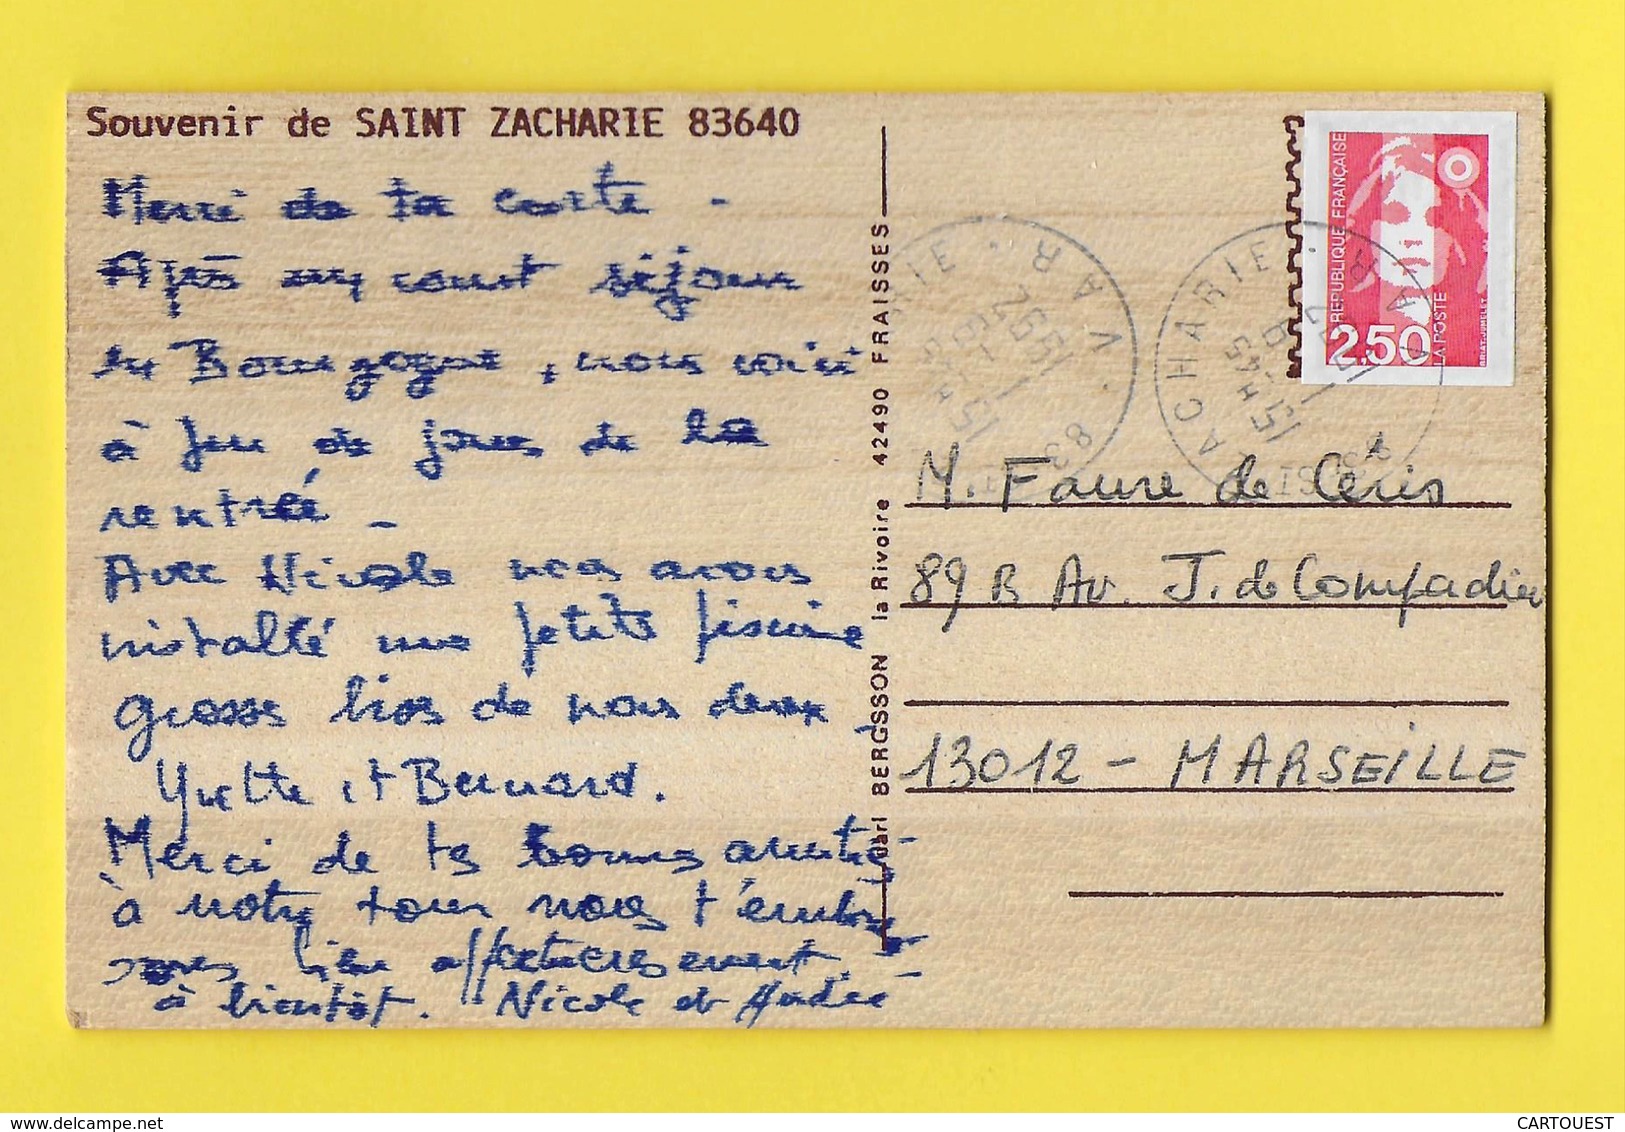 Souvenir de SAINT ZACHARIE 83640
Merci de ta carte -
Après un court séjour
en Bourgogne, nous voici
à peu de jours de la
rentrée -
Avec Nicole nous avons
installé une petite piscine
grosse bise de nous deux
Yvette et Bernard.
Merci de tes bonnes amitiés
à notre tour nous t'embras
sons bien affectueusement.
à bientôt. Nicole et André
Yvari BERGSSON la Rivoire 42490 FRAISSES
REPUBLIQUE FRANÇAISE
2,50
LA POSTE
BRIAT-JUMELET
ZACHARIE · VAR
15 H 45
M. Faure de Céris
89 B Av. J. de Compadieu
13012 - MARSEILLE
CARTOUEST